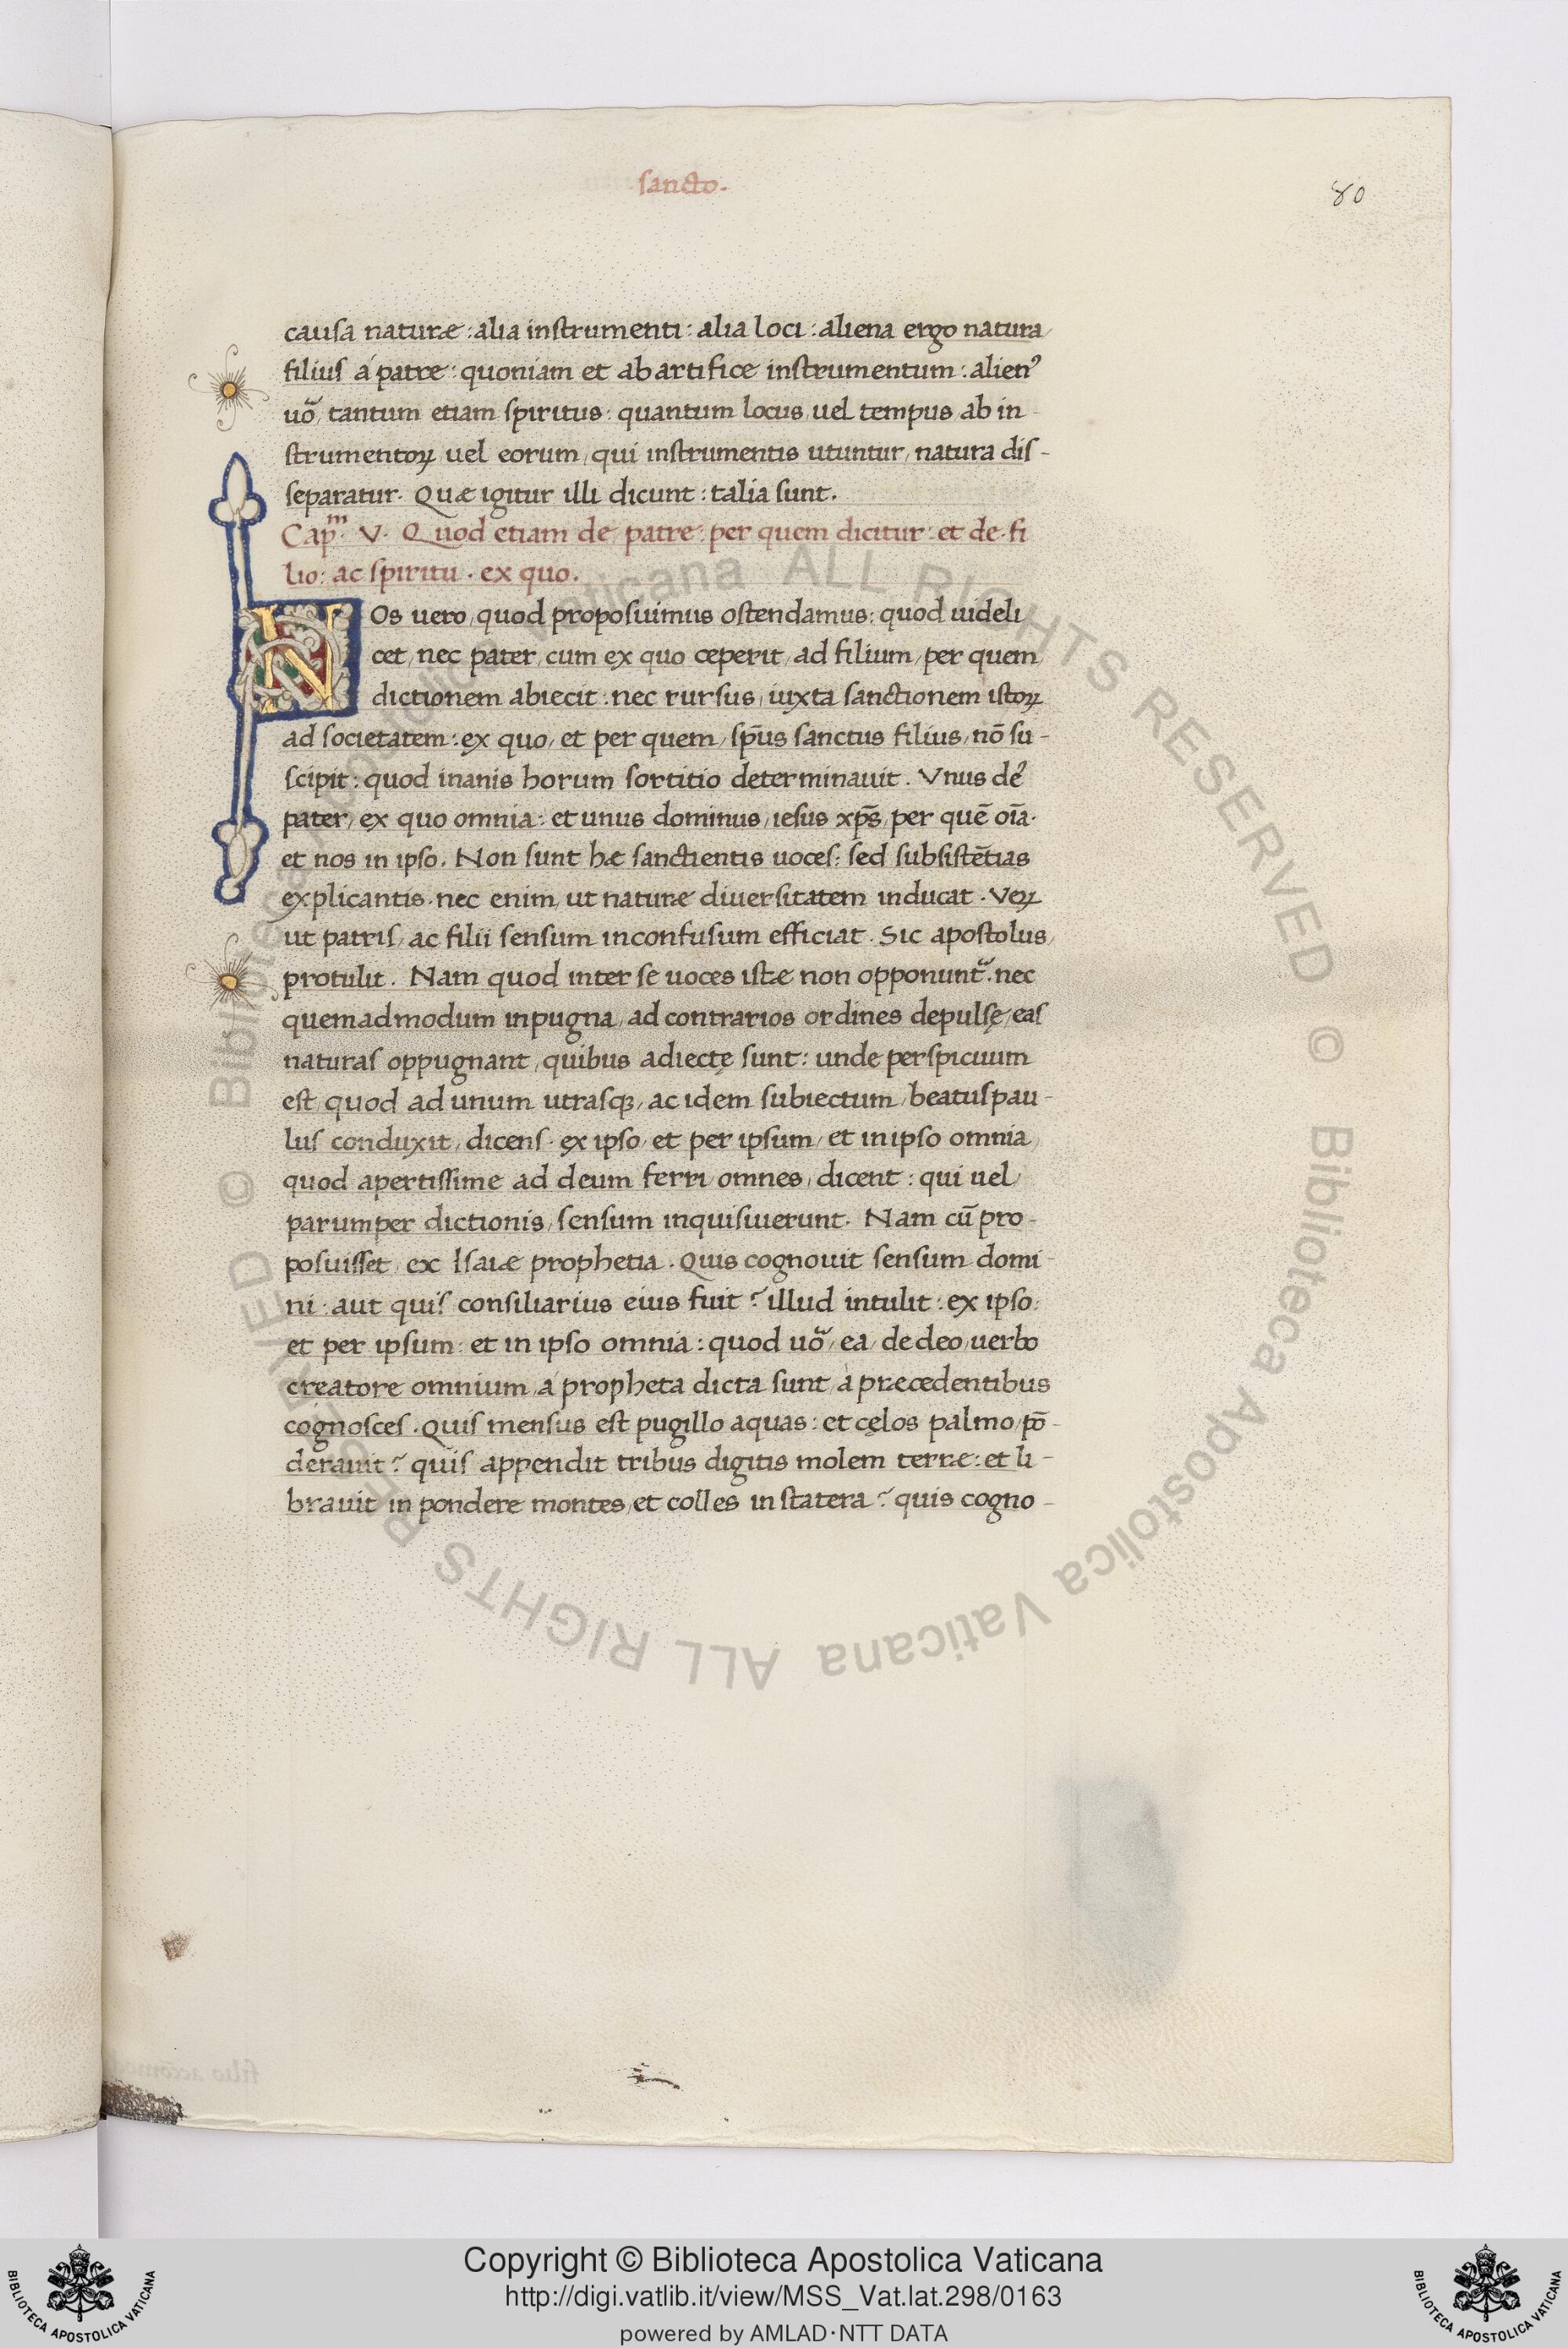 sancto.
80
causa naturæ : alia instrumenti : alia loci : aliena ergo natura
filius á patre : quoniam et ab artifice instrumentum : alienꝰ
uo᷑, tantum etiam spiritus : quantum locus, uel tempus ab in-
strumentoꝝ, uel eorum, qui instrumentis utuntur, natura dis-
separatur. Quæ igitur illi dicunt : talia sunt.
Capᵐ. V. Quod etiam de patre, per quem dicitur : et de fi
lio : ac spiritu . ex quo.
NOs uero, quod proposuimus ostendamus : quod uideli
cet, nec pater, cum ex quo ceperit, ad filium, per quem
dictionem abiecit : nec rursus, iuxta sanctionem istoꝝ
ad societatem : ex quo, et per quem, sp̄us sanctus filius, nō su-
scipit : quod inanis horum sortitio determinauit. Vnus deꝰ
pater, ex quo omnia : et unus dominus, iesus xp̄s, per quē oı̄a.
et nos in ipso. Non sunt hæ sanctientis uoces : sed subsistētias
explicantis. nec enim, ut naturæ diuersitatem inducat. Veꝝ
ut patris, ac filii sensum inconfusum efficiat. Sic apostolus,
protulit. Nam quod inter se uoces istæ non opponunt᷑. nec
quemadmodum in pugna, ad contrarios ordines depulsę, eas
naturas oppugnant, quibus adiectę sunt : unde perspicuum
est, quod ad unum utrasqꝫ, ac idem subiectum, beatus pau-
lus conduxit, dicens. ex ipso, et per ipsum, et in ipso omnia,
quod apertissime ad deum ferri, omnes, dicent : qui uel,
parumper dictionis, sensum inquisiuerunt. Nam cū pro-
posuisset, ex Isaiæ prophetia. Quis cognouit sensum domi-
ni : aut quis consiliarius eius fuit ? illud intulit : ex ipso :
et per ipsum : et in ipso omnia : quod uo᷑, ea, de deo, uerbo
creatore omnium, á propheta dicta sunt, à præcedentibus
cognosces. Quis mensus est pugillo aquas : et cęlos palmo, pō-
derauit ? quis appendit tribus digitis molem terræ : et li-
brauit in pondere montes, et colles in statera ? quis cogno-
© Biblioteca Apostolica Vaticana ALL RIGHTS RESERVED
© Biblioteca Apostolica Vaticana ALL RIGHTS RESERVED
Copyright © Biblioteca Apostolica Vaticana
http://digi.vatlib.it/view/MSS_Vat.lat.298/0163
powered by AMLAD·NTT DATA
BIBLIOTECA APOSTOLICA VATICANA
BIBLIOTECA APOSTOLICA VATICANA